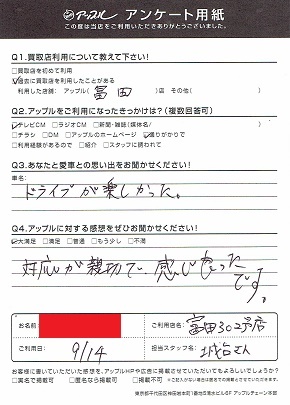 アップル アンケート用紙
この度は当店をご利用いただきありがとうございました。
Q1.買取店利用について教えて下さい!
□買取を初めて利用
☑過去に買取を利用したことがある
利用した店舗: アップル( 富田 )店 その他( )
Q2.アップルをご利用になったきっかけは?(複数回答可)
☑テレビCM □ラジオCM □新聞・雑誌(媒体名/ )
□チラシ □DM □アップルのホームページ ☑通りがかりで
□利用経験があるので □紹介 □スタッフに誘われて
Q3.あなたと愛車との思い出をお聞かせください!
車名:
ドライブが楽しかった。
Q4.アップルに対する感想をぜひお聞かせください!
☑大満足 □満足 □普通 □もう少し □不満
対応が親切で、感じ良かったです。
お名前:
ご利用店名: 富田302号店
ご利用日: 9/14
担当スタッフ名: さん
お客様に書いていただいた感想を、アップルHPや広告に掲載させていただいてもよろしいでしょうか?
□実名で掲載可 □匿名なら掲載可 □掲載不可
東京都千代田区神田岩本町1番地5清水ビル6F アップルチェーン本部